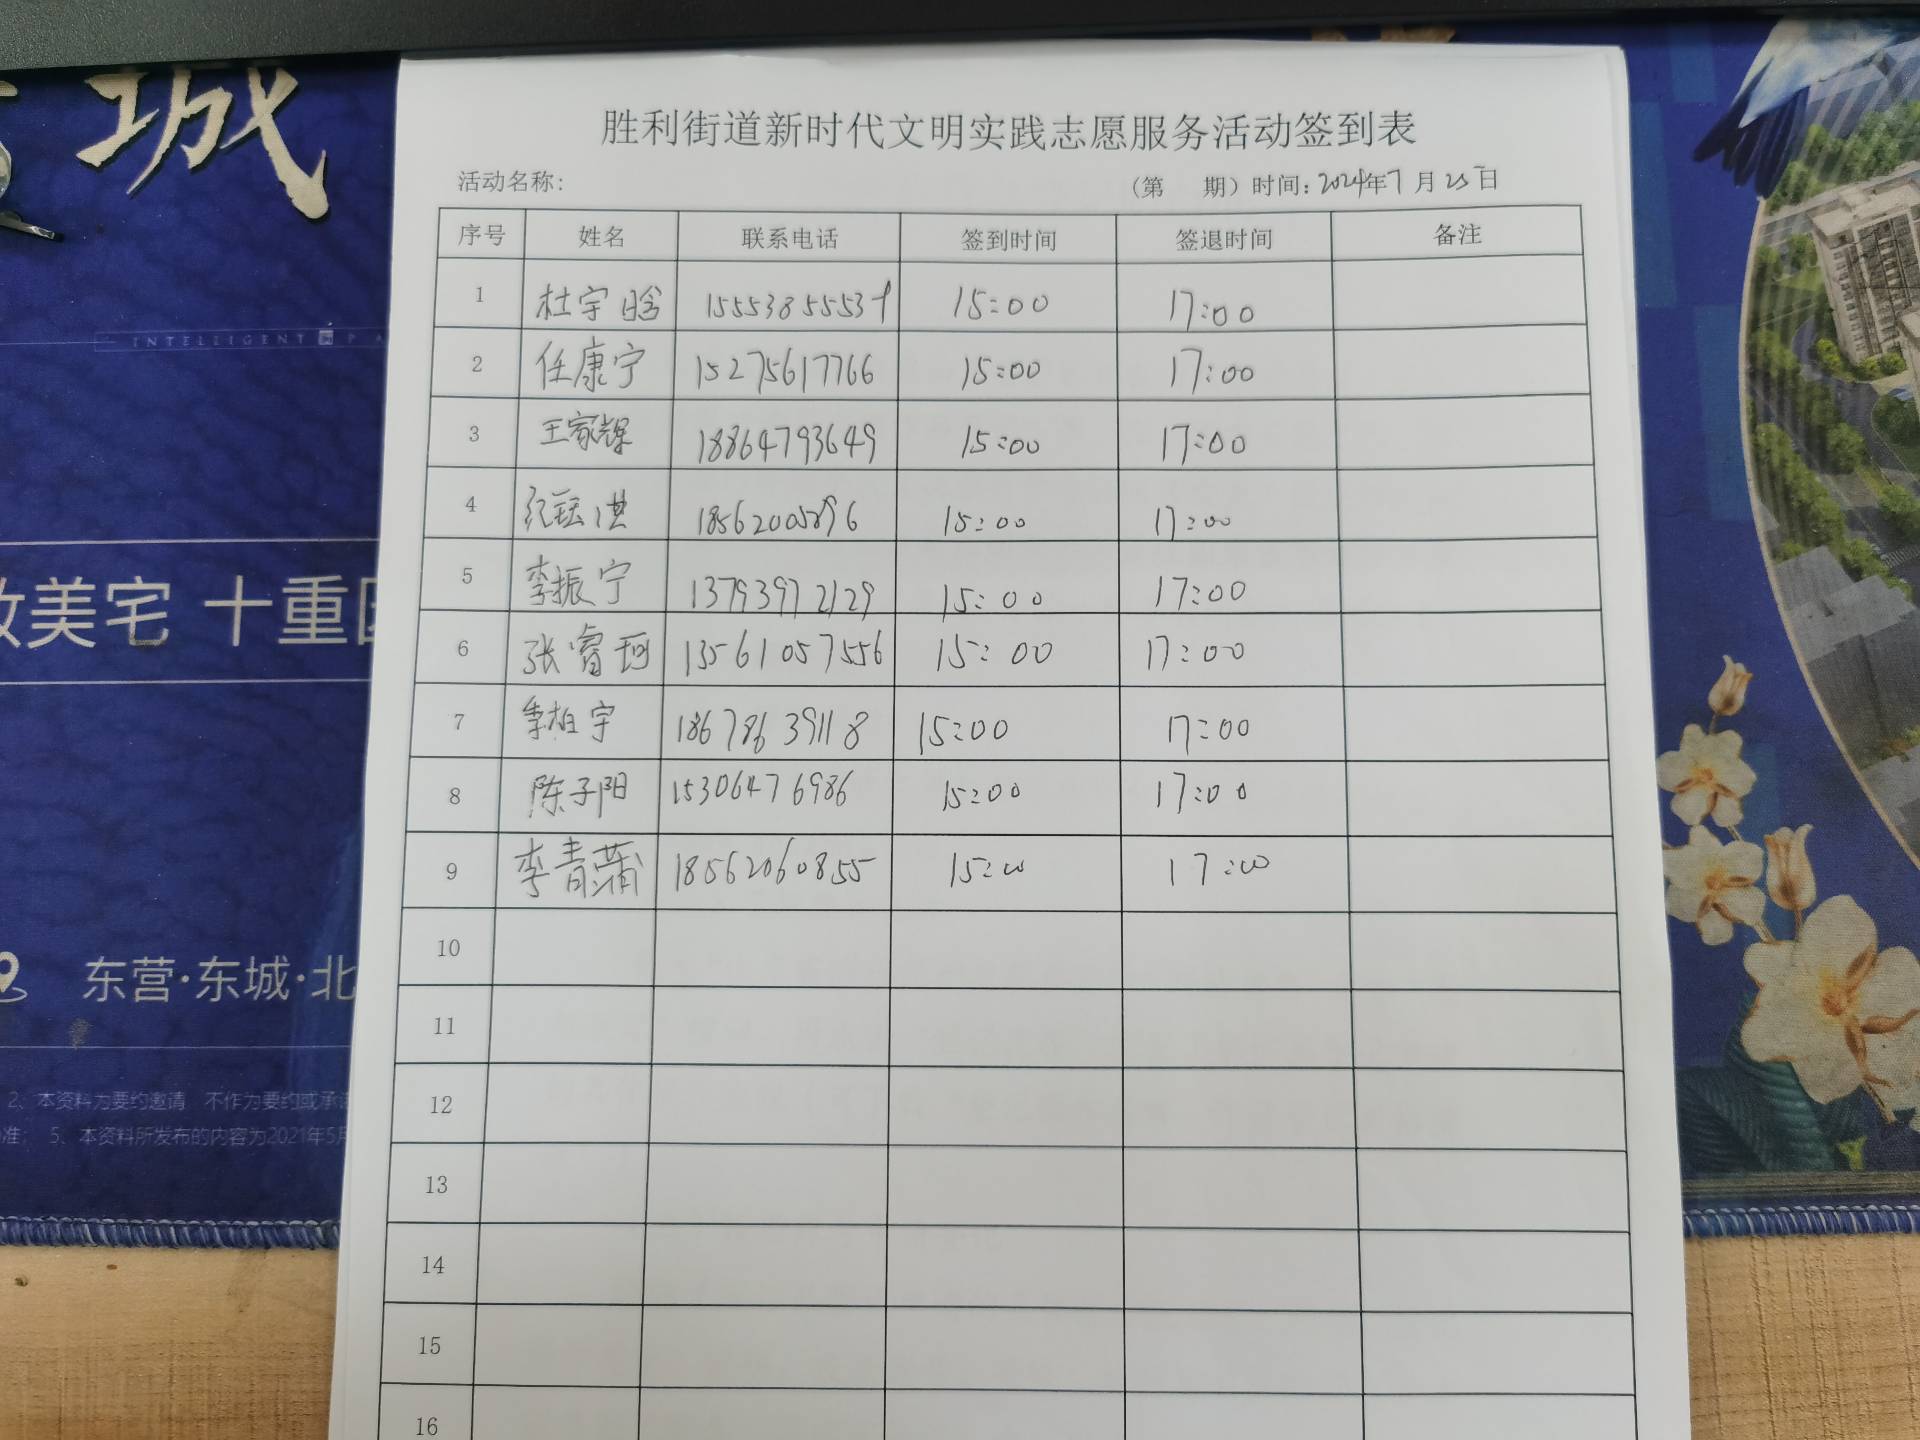 城
INTELLIGENT
美宅 十重
东营·东城·北
2、本资料为要约邀请 不作为要约或承诺
准; 5、本资料所发布的内容为2021年5月
胜利街道新时代文明实践志愿服务活动签到表
活动名称: (第 期) 时间: 2024年7月25日
序号 姓名 联系电话 签到时间 签退时间 备注
1 杜宇晗 15:00 17:00
2 任康宁 15275617766 15:00 17:00
3 王家辉 18864793649 15:00 17:00
4 15:00 17:00
5 李振宁 13793972129 15:00 17:00
6 张睿珂 13561057556 15:00 17:00
7 季柏宇 18678639118 15:00 17:00
8 陈子阳 15306476986 15:00 17:00
9 李青蒲 18562060855 15:00 17:00
10
11
12
13
14
15
16